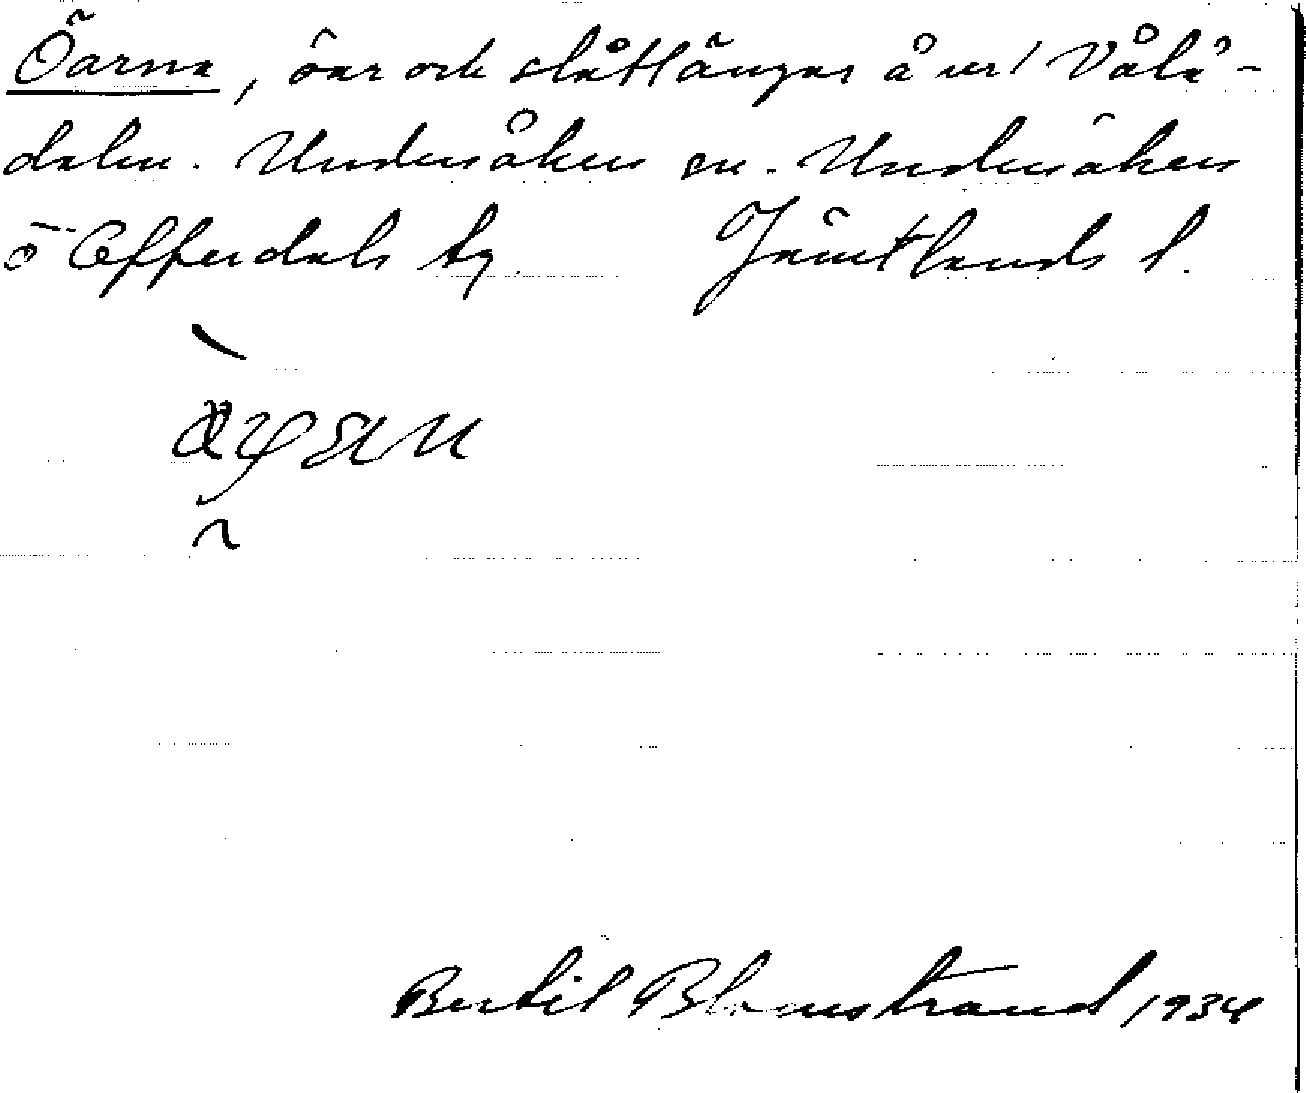 Öarna, öar och slåttängar å ver/ Vålå-
dalen. Undersåkers sn. Undersåkers
o Offerdals tg. Jämtlands l.
Bertil Blomstrand 1934